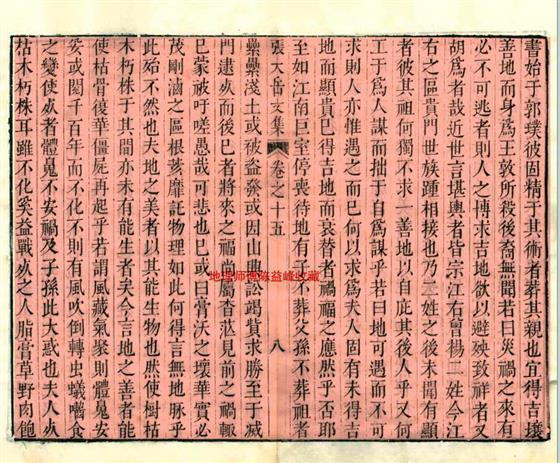 書始于郭璞彼固精于其術者葬其親也宜得吉壤
善地而身爲王敦所殺後裔無聞若曰災禍之來有
必不可逃者則人之博求吉地欲以避殃致祥者又
胡爲者哉近世言堪輿者皆宗江右曾楊二姓今江
右之區貴門世族踵相接也乃二姓之後未聞有顯
者彼其祖何獨不求一善地以自庇其後人乎又何
工于爲人謀而拙于自爲謀乎若曰地可遇而不可
求則人亦惟遇之而已何以求爲夫人固有未得吉
地而顯貴已得吉地而衰替者禍福之應然乎否耶
至如江南巨室停喪待地有子不葬父孫不葬祖者
張太岳文集
卷之十五
八
地理师傅陈益峰收藏
纍纍淺土或被盗發或因山曲訟竭貲求勝至于滅
門逮及而後巳者將來之福尚屬杳茫見前之禍輙
巳蒙被吁嗟愚哉可悲也巳或曰膏沃之壤華實必
茂剛滷之區根荄靡託物理如此何得言無地脉乎
此殆不然也夫地之美者以其能生物也然使樹枯
木朽株于其間亦未有能生者矣今言地之善者能
使枯骨復華僵屍再起乎若謂風藏氣聚則體魄安
妥或閱千百年而不化不則有風吹倒轉虫蟻囓食
之變使死者體魄不安禍及子孫此大惑也夫人死
枯木朽株耳雖不化奚益戰死之人脂膏草野肉飽